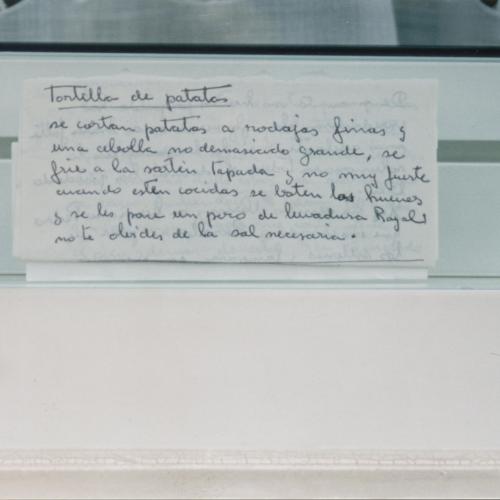 Tortilla de patatas
se cortan patatas a rodajas finas y
una cebolla no demasiado grande, se
frie a la sartén tapada y no muy fuerte
cuando estén cocidas se baten los huevos
y se les pone un poco de levadura Royal
no te olvides de la sal necesaria.